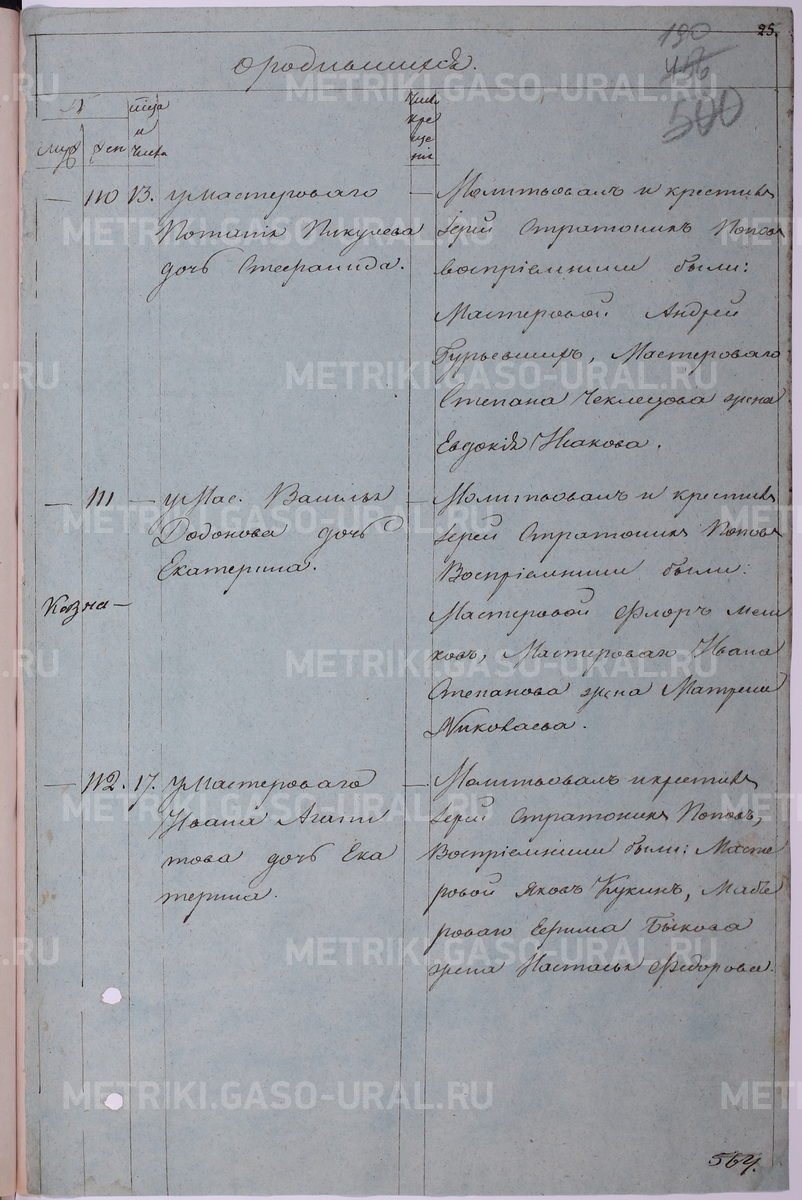 25.
190
500
о родившихся.
№
муж
жен
мца
и
числа
Число
кре
ще
нiя
— 110 13. у мастероваго
Потапiя Пикулева
дочь Стефанида.
— Молитвовалъ и крестилъ
Iерей Стратоникъ Поповъ
воспрiемники были:
Мастеровой Андрей
Гурьевшихъ, Мастероваго
Степана Чеклецова жена
Евдокiя Исакова.
— 111 — у Мас. Василья
Додонова дочь
Екатерина.
Казна —
— Молитвовалъ и крестилъ
Iерей Стратоникъ Поповъ
Воспрiемники были:
Мастеровой Флоръ Меш
ковъ, Мастероваго Ивана
Степанова жена Матрена
Николаева.
— 112. 17. у Мастероваго
Ивана Агапи
това дочь Ека
терина.
— Молитвовалъ и крестилъ
Iерей Стратоникъ Поповъ,
Воспрiемники были: Масте
ровой Яковъ Кукинъ, Масте
роваго Ефима Быкова
жена Настасья Федорова.
564.
METRIKI.GASO-URAL.RU